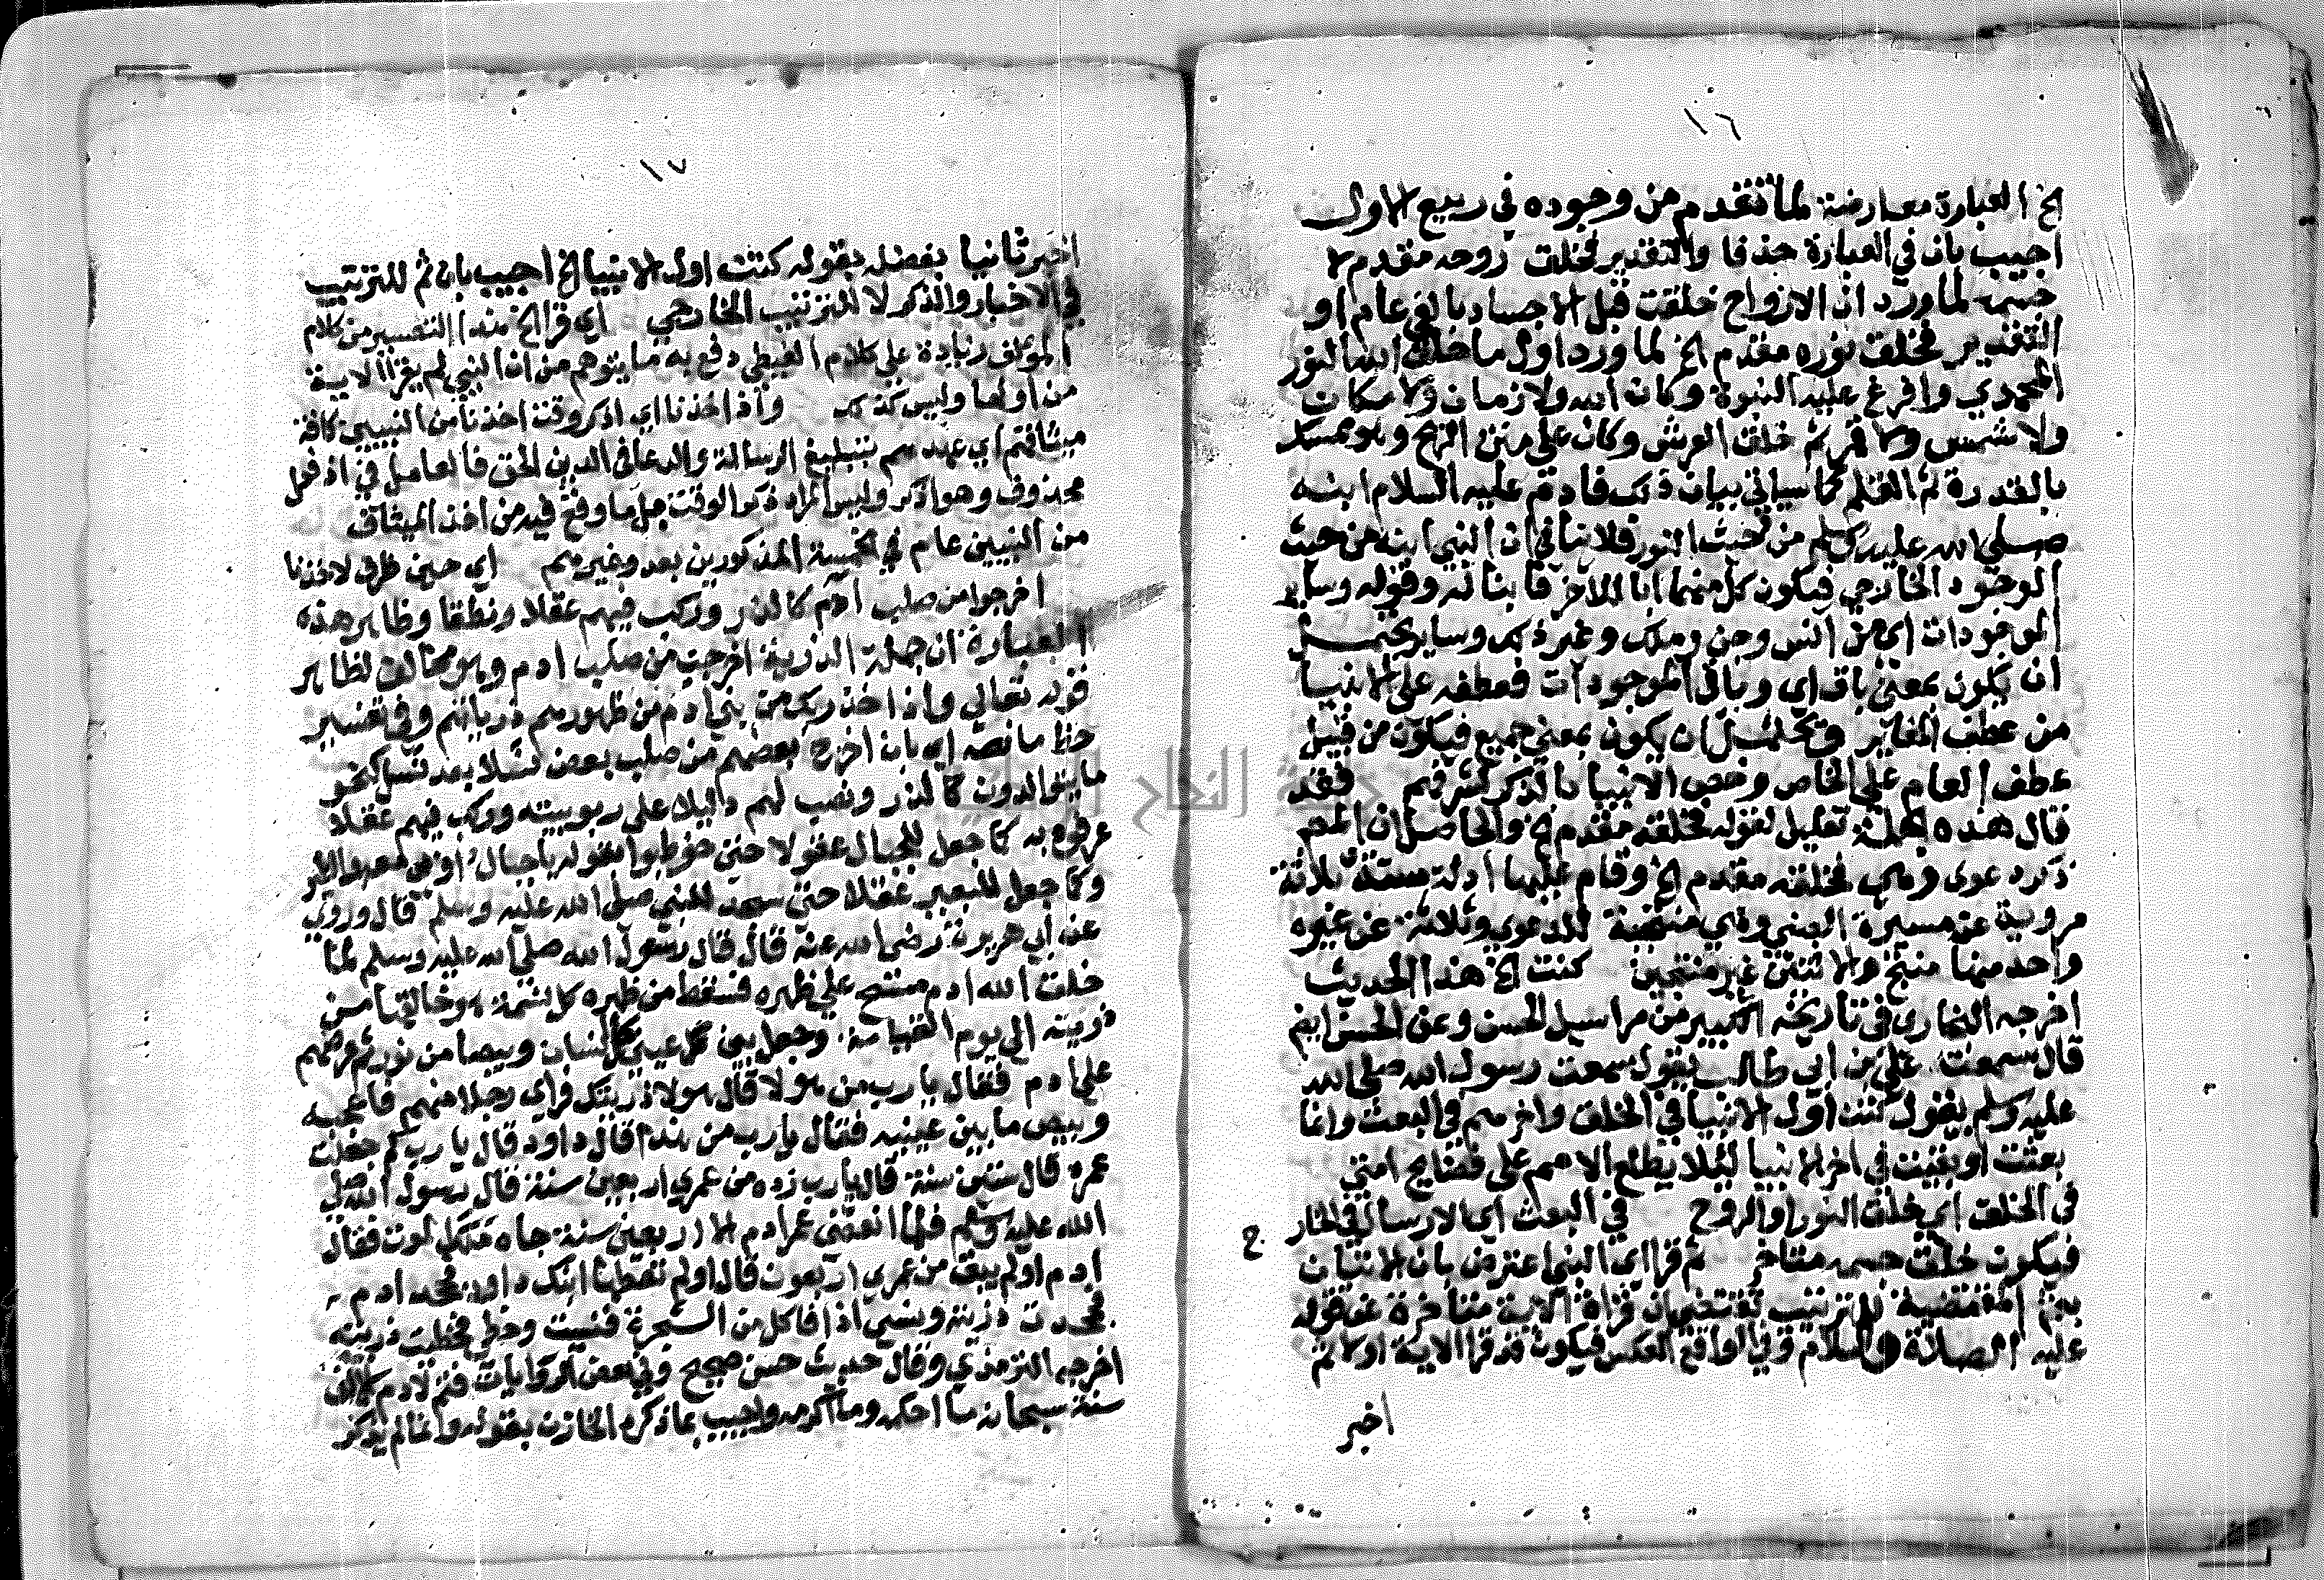 ١٦
الخ العبارة معارضة لما تقدم من وجوده في ربيع الاول
اجيب بان في العبارة حذفا والتقدير فخلق روحه مقدم لا
جسمه لما ورد ان الارواح خلقت قبل الاجساد بالفي عام او
التقدير فخلق نوره مقدم الخ لما ورد اول ما خلق الله النور
المحمدي وافرغ عليه النبوة وكان الله ولا زمان ولا مكان
ولا شمس ولا قمر ثم خلق العرش وكان على متن الريح وهو ممسك
بالقدرة ثم القلم كما سياتي بيان ذلك فادم عليه السلام ابنه
صلى الله عليه وسلم من حيث النور فلا ينافي ان النبي ابنه من حيث
الوجود الخارجي فيكون كل منهما ابا للاخر قابنا له وقوله وساير
الموجودات اي من انس وجن وملك وغير ذلك وساير يحتمل
ان يكون بمعنى باق اي وباقي الموجودات فعطفه على الانبيا
من عطف المغاير ويحتمل ان يكون بمعنى جميع فيكون من قبيل
عطف العام على الخاص وخص الانبيا بالذكر لشرفهم فقد
قال هذه الجملة تعليل لقوله فخلقه مقدم الخ والحاصل ان المص
ذكر دعوى وهي فخلقه مقدم الخ وقام عليها ادلة ستة ثلاثة
مروية عن مسيرة النبي وهي منتجة للدعوى وثلاثة عن غيره
واحد منها منتج والاثنين غير منتجين كنت الخ هذا الحديث
اخرجه البخاري في تاريخه الكبير من مراسيل الحسن وعن الحسن ايض
قال سمعت علي بن ابي طالب يقول سمعت رسول الله صلى الله
عليه وسلم يقول كنت اول الانبيا في الخلق واخرهم في البعث وانما
بعثت او بقيت في اخر الانبيا لئلا يطلع الامم على فضايح امتي
في الخلق اي خلق النور او الروح في البعث اي الارسال في الخار ج
فيكون خلق جسمه متاخر ثم قرا اي النبي اعترض بان الاتيان
بثم المقتضية للترتيب تقتضي ان قراة الاية متاخرة عن قوله
عليه الصلاة والسلام وفي الواقع العكس فيكون قد قرا الاية اولا ثم
اخبر
١٧
اخبر ثانيا بفضله بقوله كنت اول الانبيا الخ اجيب بان ثم للترتيب
في الاخبار والذكر لا للترتيب الخارجي اي قرا الخ هذا التفسير من كلام
المؤلف زيادة على كلام الغيطي دفع به ما يتوهم من ان النبي لم يقرا الاية
من اولها وليس كذلك واذ اخذنا اي اذكر وقت اخذنا من النبيين كافة
ميثاقهم اي عهدهم بتبليغ الرسالة والدعا في الدين الحق فالعامل في اذ فعل
محذوف وهو اذكر وليس المراد ذكر الوقت بل ما وقع فيه من اخذ الميثاق
من النبيين عام في الخمسة المذكورين بعد وغيرهم اي حين ظرف لاخذنا
اخرجوا من صلب آدم كالذر وركب فيهم عقلا ونطقا وظاهر هذه
العبارة ان جملة الذرية اخرجت من صلب ادم وهو مخالف لظاهر
قوله تعالى واذ اخذ ربك من بني ادم من ظهورهم ذرياتهم وفي تفسير
خط ما نصه اي بان اخرج بعضهم من صلب بعض نسلا بعد نسل كنحو
ما يتوالدون كالذر ونصب لهم دليلا على ربوبيته وركب فيهم عقلا
عرفوه به كما جعل للجبال عقولا حتى خوطبوا بقوله يا جبال اوبي معه والطير
وكما جعل للبعير عقلا حتى سجد للنبي صلى الله عليه وسلم قال وروي
عن ابي هريرة رضى الله عنه قال قال رسول الله صلى الله عليه وسلم لما
خلق الله ادم مسح على ظهره فسقط من ظهره كل نسمة هو خالقها من
ذريته الى يوم القيامة وجعل بين عيني كل انسان وبيصا من نور ثم عرضهم
على ادم فقال يا رب من هولا قال هولا ذريتك فراى رجلا منهم فاعجبه
وبيص ما بين عينيه فقال يا رب من هذا قال داود قال يا رب كم جعلت
عمره قال ستين سنة قال يا رب زده من عمري اربعين سنة قال رسول الله صلى
الله عليه وسلم فلما انقضى عمر ادم الا اربعين سنة جاه ملك الموت فقال
ادم اولم يبق من عمري اربعون قال اولم تعطها ابنك داود فجحد ادم
فجحدت ذريته ونسي اذا فاكل من الشجرة فنسيت وخطي فخطت ذريته
اخرجه الترمذي وقال حديث حسن صحيح وفي بعض الروايات فتم لادم الف
سنة سبحانه ما احكمه وما اكرمه واجيب بما ذكره الخازن بقوله وانما لم يذكر